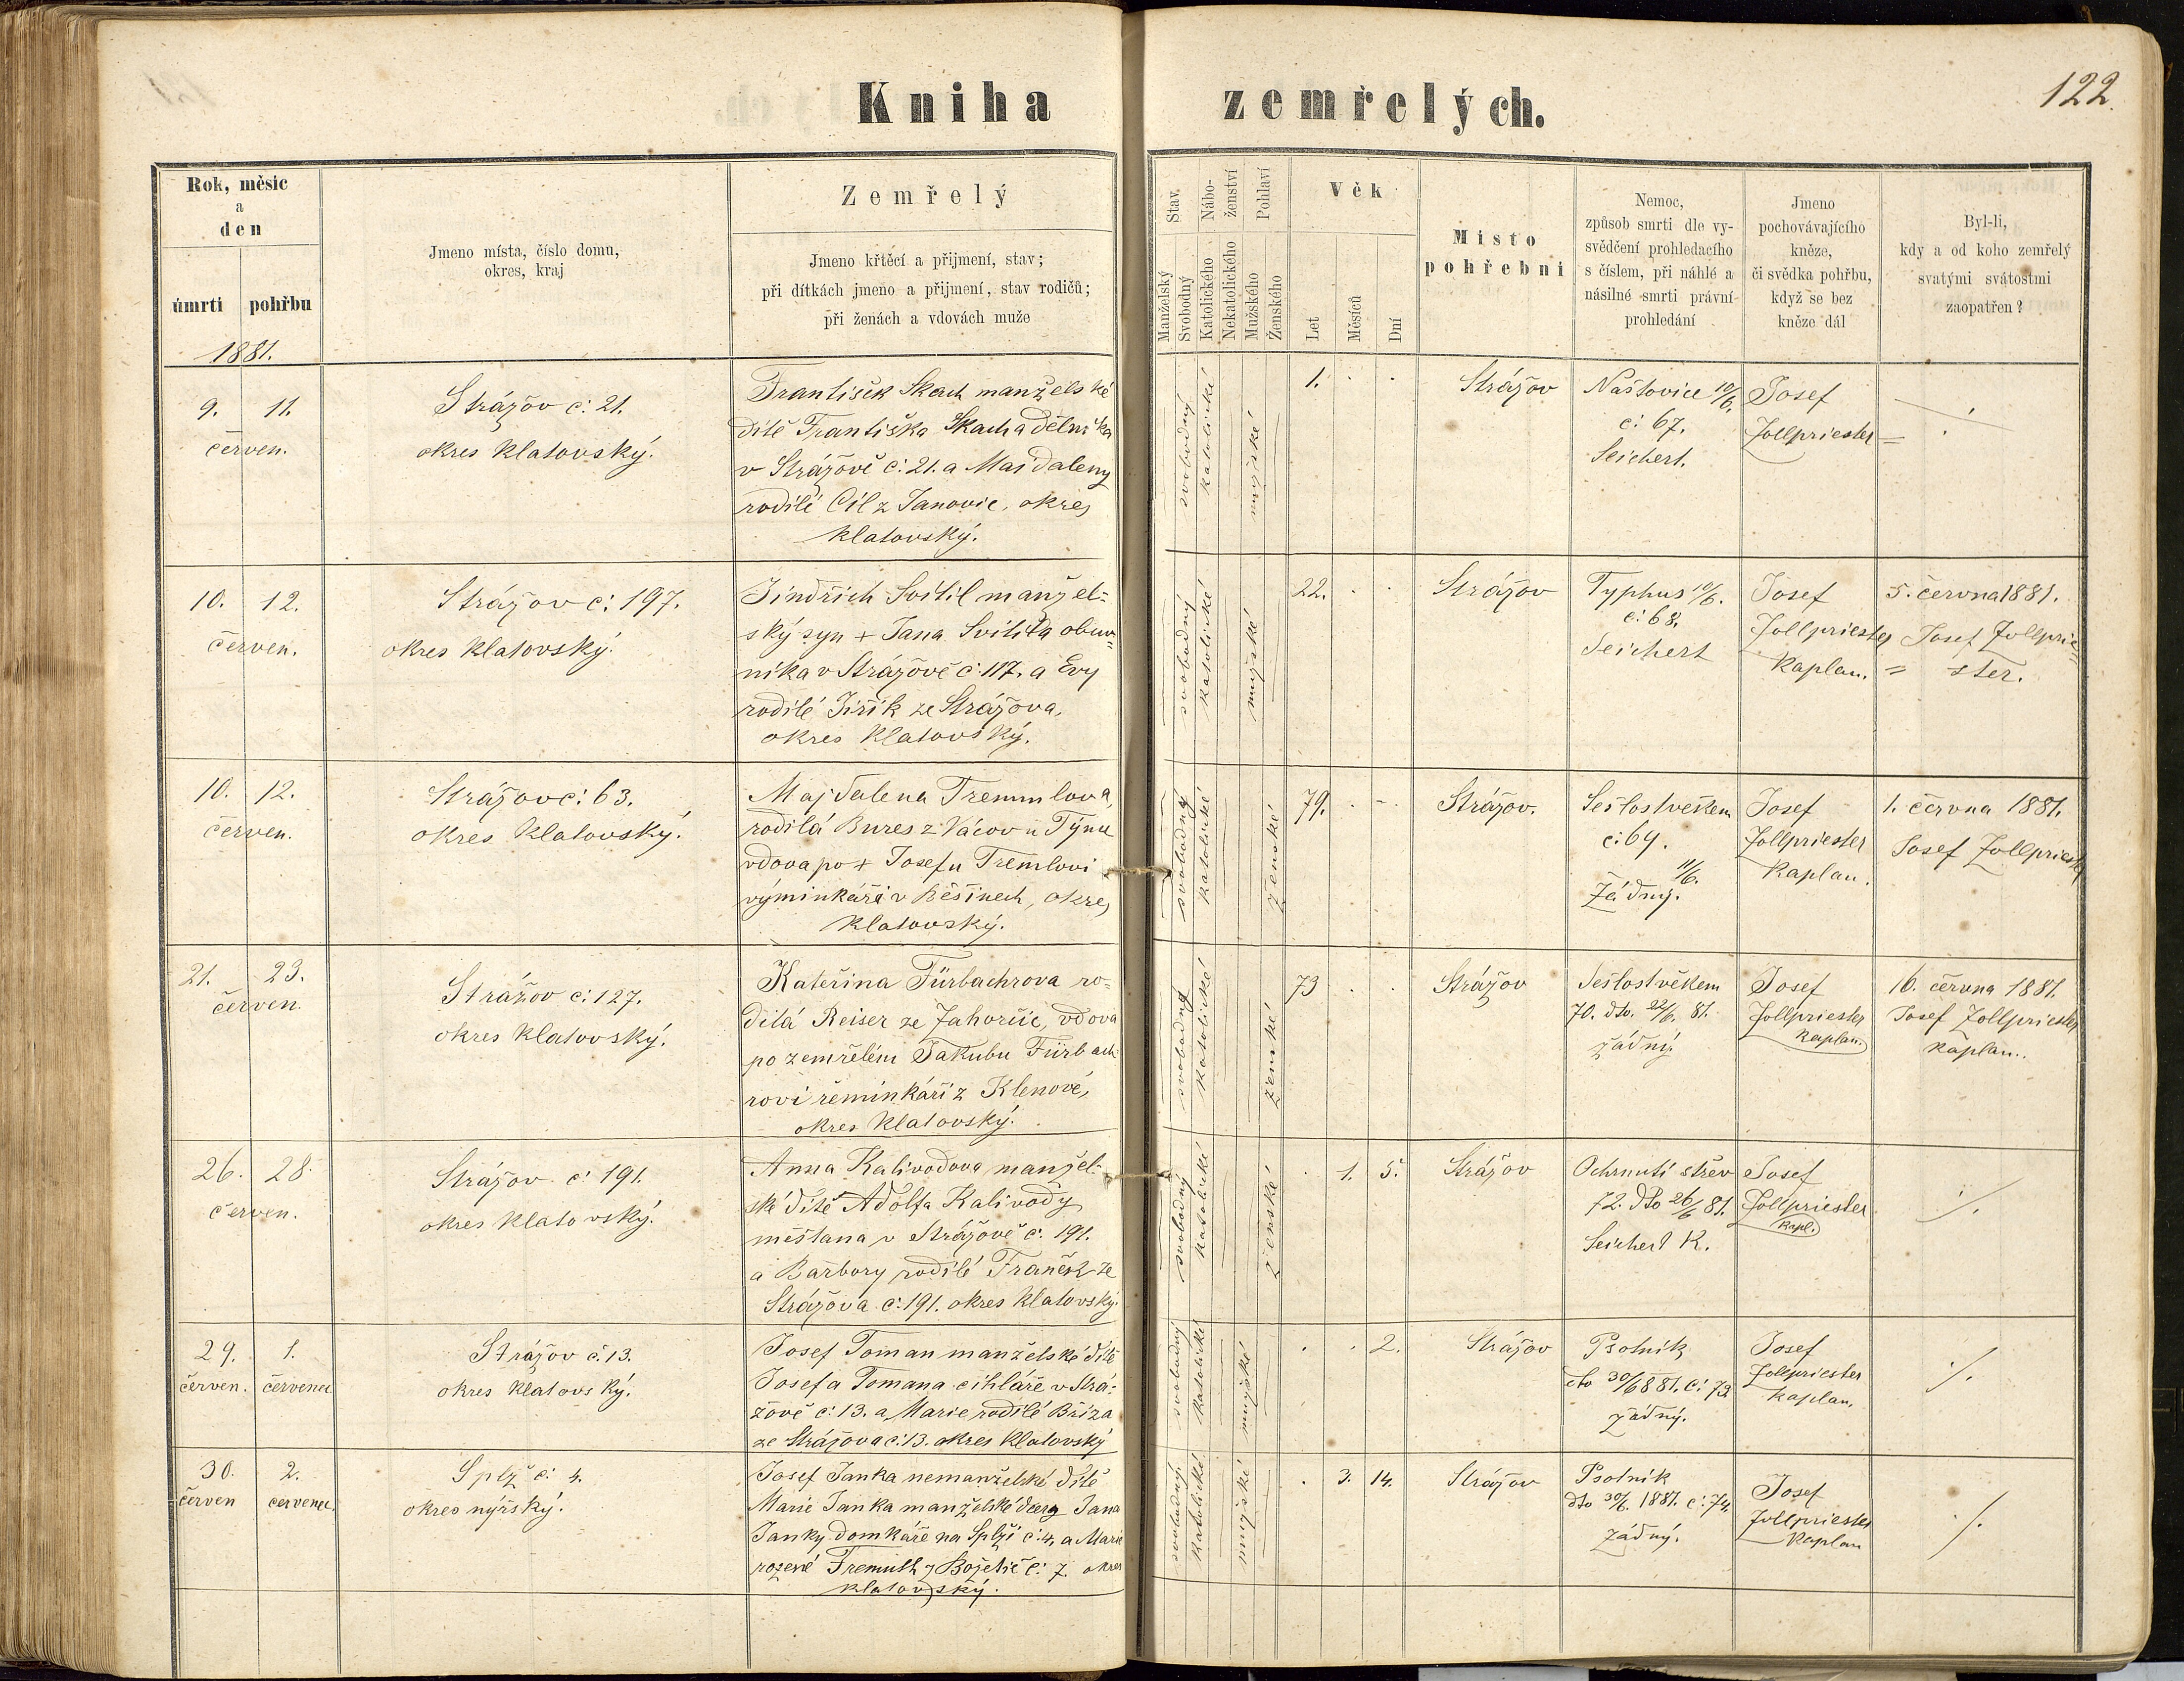 Kniha zemřelých.
122.
Rok, měsíc
a
den
úmrtí pohřbu
Jmeno místa, číslo domu,
okres, kraj
Zemřelý
Jmeno křtěcí a přijmení, stav;
při dítkách jmeno a přijmení, stav rodičů;
při ženách a vdovách muže
Stav.
Manželský
Svobodný
Nábo-
ženství
Katolického
Nekatolického
Pohlaví
Mužského
Ženského
Věk
Let
Měsíců
Dní
Místo
pohřební
Nemoc,
způsob smrti dle vy-
svědčení prohledacího
s číslem, při náhlé a
násilné smrti právní
prohledání
Jmeno
pochovávajícího
kněze,
či svědka pohřbu,
když se bez
kněze dál
Byl-li,
kdy a od koho zemřelý
svatými svátostmi
zaopatřen?
1881.
9. 11.
červen.
Strážov č: 21.
okres Klatovský.
František Skach manželské
dítě Františka Skacha dělníka
v Strážově č: 21. a Majdaleny
rodilé Cíl z Janovic, okres
Klatovský.
svobodný
katolické
mužské
1. . .
Strážov
Neštovice 10/6.
č: 67.
Seichert.
Josef
Zollpriester
10. 12.
červen.
Strážov č: 197.
okres Klatovský.
Jindřich Svítil manžel-
ský syn + Jana Svítila obuv-
níka v Strážově č: 117. a Evy
rodilé Jiřík ze Strážova,
okres Klatovský.
svobodný
katolické
mužské
22. . .
Strážov
Typhus 10/6.
č: 68.
Seichert
Josef
Zollpriester
Kaplan.
5. června 1881.
Josef Zollprie-
ster.
10. 12.
červen.
Strážov č: 63.
okres Klatovský.
Majdalena Tremmlova,
rodilá Bures z Vácov u Týnu
vdova po + Josefu Tremlovi
výminkáři v Běšinech, okres
Klatovský.
svobodný
katolické
ženské
79. . -
Strážov.
Sešlost věkem
č: 69.
11/6.
Žádný.
Josef
Zollpriester
Kaplan.
1. června 1881.
Josef Zollpriester
21. 23.
červen.
Strážov č: 127.
okres Klatovský.
Kateřina Fürbachrova ro-
dilá Reiser ze Zahorčic, vdova
po zemřelém Jakubu Fürbach-
rovi řemínkáři z Klenové,
okres Klatovský.
svobodný
katolické
ženské
73 . .
Strážov
Sešlost věkem
70. dto. 22/6. 81.
žádný.
Josef
Zollpriester
Kaplan.
16. června 1881.
Josef Zollpriester
Kaplan.
26. 28.
červen.
Strážov č: 191.
okres Klatovský.
Anna Kalivodova manžel-
ské dítě Adolfa Kalivody
měštana v Strážově č: 191.
a Barbory rodilé Franěk ze
Strážova č: 191. okres Klatovský.
svobodný
katolické
ženské
. 1. 5.
Strážov
Ochrnutí střev
72. dto 26/6 81.
Seichert K.
Josef
Zollpriester
Kapl.
./.
29. 1.
červen. červenec
Strážov č. 13.
okres Klatovský.
Josef Toman manželské dítě
Josefa Tomana cihláře v Strá-
žově č: 13. a Marie rodilé Bříza
ze Strážova č: 13. okres Klatovský
svobodný
katolické
mužské
. . 2.
Strážov
Psotník
dto 30/6 881. č: 73.
žádný.
Josef
Zollpriester
Kaplan.
./.
30. 2.
červen červenec
Splž č: 4.
okres nýrský.
Josef Janka nemanželské dítě
Marie Janka manželské dcery Jana
Janky domkáře na Splži č: 4, a Marie
rozené Tremuth z Božetic č: 7. okres
Klatovský.
svobodný
katolické
mužské
. 3. 14.
Strážov
Psotník
dto 30/6. 1881. č: 74.
žádný.
Josef
Zollpriester
Kaplan
./.